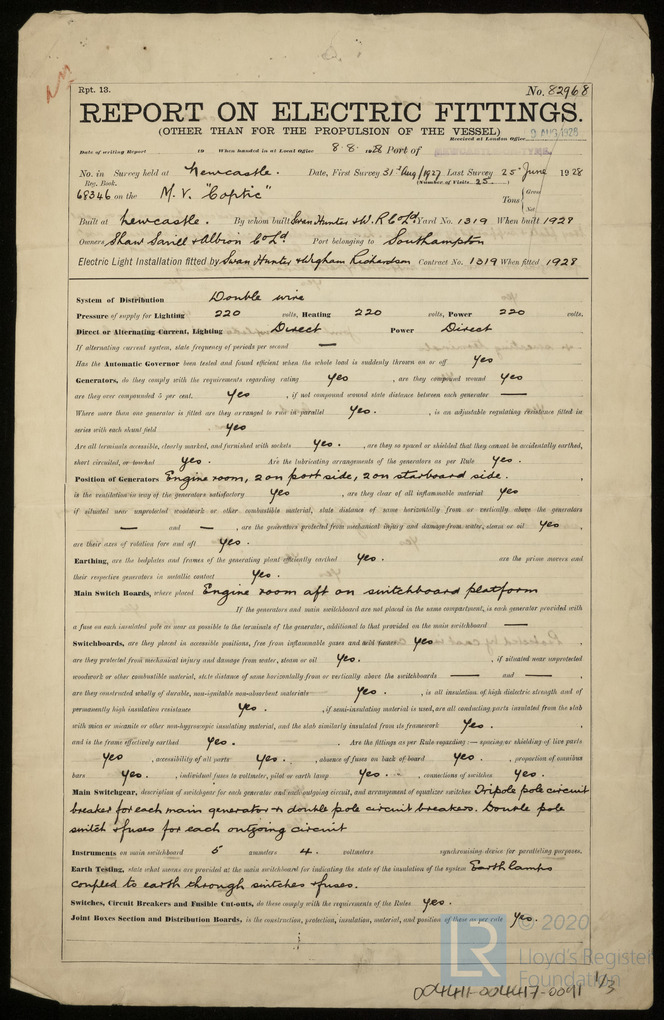 Rpt. 13.
No. 82968
REPORT ON ELECTRIC FITTINGS.
(OTHER THAN FOR THE PROPULSION OF THE VESSEL)
Received at London Office 9 AUG 1928
Date of writing Report 19 When handed in at Local Office 8.8.1928 Port of
No. in Survey held at Newcastle. Date, First Survey 31st Aug/1927 Last Survey 25 June 1928
Reg. Book. (Number of Visits 25)
68346 on the M.V. "Coptic" Tons { Gross
Net
Built at Newcastle. By whom built Swan Hunter & W.R Co Ld Yard No. 1319 When built 1928
Owners Shaw Savill & Albion Co Ld Port belonging to Southampton
Electric Light Installation fitted by Swan Hunter & Wigham Richardson Contract No. 1319 When fitted 1928
System of Distribution Double wire
Pressure of supply for Lighting 220 volts, Heating 220 volts, Power 220 volts.
Direct or Alternating Current, Lighting Direct Power Direct
If alternating current system, state frequency of periods per second —
Has the Automatic Governor been tested and found efficient when the whole load is suddenly thrown on or off Yes
Generators, do they comply with the requirements regarding rating Yes , are they compound wound Yes
are they over compounded 5 per cent. Yes , if not compound wound state distance between each generator —
Where more than one generator is fitted are they arranged to run in parallel Yes. , is an adjustable regulating resistance fitted in
series with each shunt field Yes
Are all terminals accessible, clearly marked, and furnished with sockets Yes. , are they so spaced or shielded that they cannot be accidentally earthed,
short circuited, or touched Yes. Are the lubricating arrangements of the generators as per Rule Yes.
Position of Generators Engine room, 2 on port side, 2 on starboard side.
is the ventilation in way of the generators satisfactory Yes , are they clear of all inflammable material Yes
if situated near unprotected woodwork or other combustible material, state distance of same horizontally from or vertically above the generators
— and — , are the generators protected from mechanical injury and damage from water, steam or oil Yes ,
are their axes of rotation fore and aft Yes.
Earthing, are the bedplates and frames of the generating plant efficiently earthed Yes. are the prime movers and
their respective generators in metallic contact Yes.
Main Switch Boards, where placed Engine room aft on switchboard platform
If the generators and main switchboard are not placed in the same compartment, is each generator provided with
a fuse on each insulated pole as near as possible to the terminals of the generator, additional to that provided on the main switchboard —
Switchboards, are they placed in accessible positions, free from inflammable gases and acid fumes Yes ,
are they protected from mechanical injury and damage from water, steam or oil Yes. , if situated near unprotected
woodwork or other combustible material, state distance of same horizontally from or vertically above the switchboards — and — ,
are they constructed wholly of durable, non-ignitable non-absorbent materials Yes. , is all insulation of high dielectric strength and of
permanently high insulation resistance Yes. , if semi-insulating material is used, are all conducting parts insulated from the slab
with mica or micanite or other non-hygroscopic insulating material, and the slab similarly insulated from its framework Yes. ,
and is the frame effectively earthed Yes. . Are the fittings as per Rule regarding:— spacing or shielding of live parts
Yes , accessibility of all parts Yes. , absence of fuses on back of board Yes. , proportion of omnibus
bars Yes. , individual fuses to voltmeter, pilot or earth lamp Yes. , connections of switches Yes.
Main Switchgear, description of switchgear for each generator and each outgoing circuit, and arrangement of equalizer switches Tripole pole circuit
breaker for each main generator & double pole circuit breakers. Double pole
switch & fuses for each outgoing circuit
Instruments on main switchboard 5 ammeters 4. voltmeters synchronising device for paralleling purposes.
Earth Testing, state what means are provided at the main switchboard for indicating the state of the insulation of the system Earth lamps
coupled to earth through switches & fuses.
Switches, Circuit Breakers and Fusible Cut-outs, do these comply with the requirements of the Rules Yes.
Joint Boxes Section and Distribution Boards, is the construction, protection, insulation, material, and position of these as per rule Yes.
LR © 2020
Lloyd's Register
Foundation
004411-004417-0091 1/3